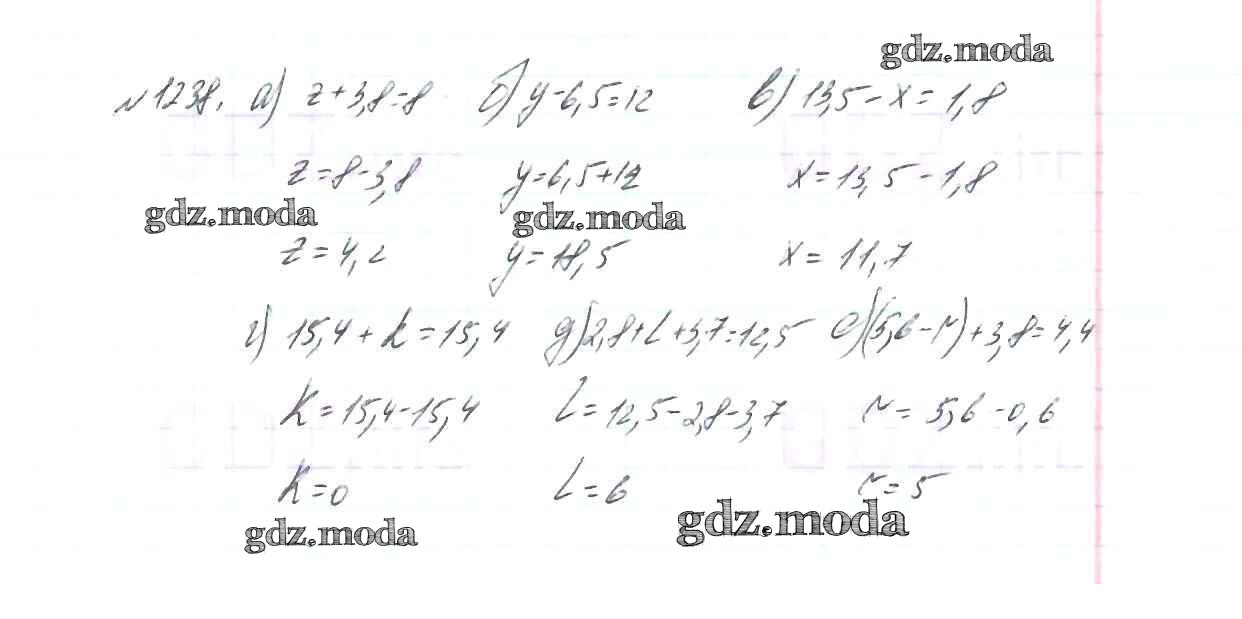 gdz.moda
№1238. а) z+3,8=8 б) y-6,5=12 в) 13,5-x=1,8
z=8-3,8 y=6,5+12 x=13,5-1,8
gdz.moda gdz.moda
z=4,2 y=18,5 x=11,7
г) 15,4+k=15,4 д) 2,8+l+3,7=12,5 е) (5,6-r)+3,8=4,4
k=15,4-15,4 l=12,5-2,8-3,7 r=5,6-0,6
k=0 l=6 r=5
gdz.moda gdz.moda